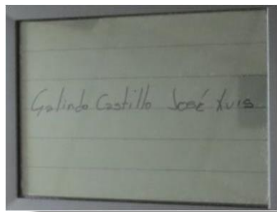 Galindo Castillo José Luis